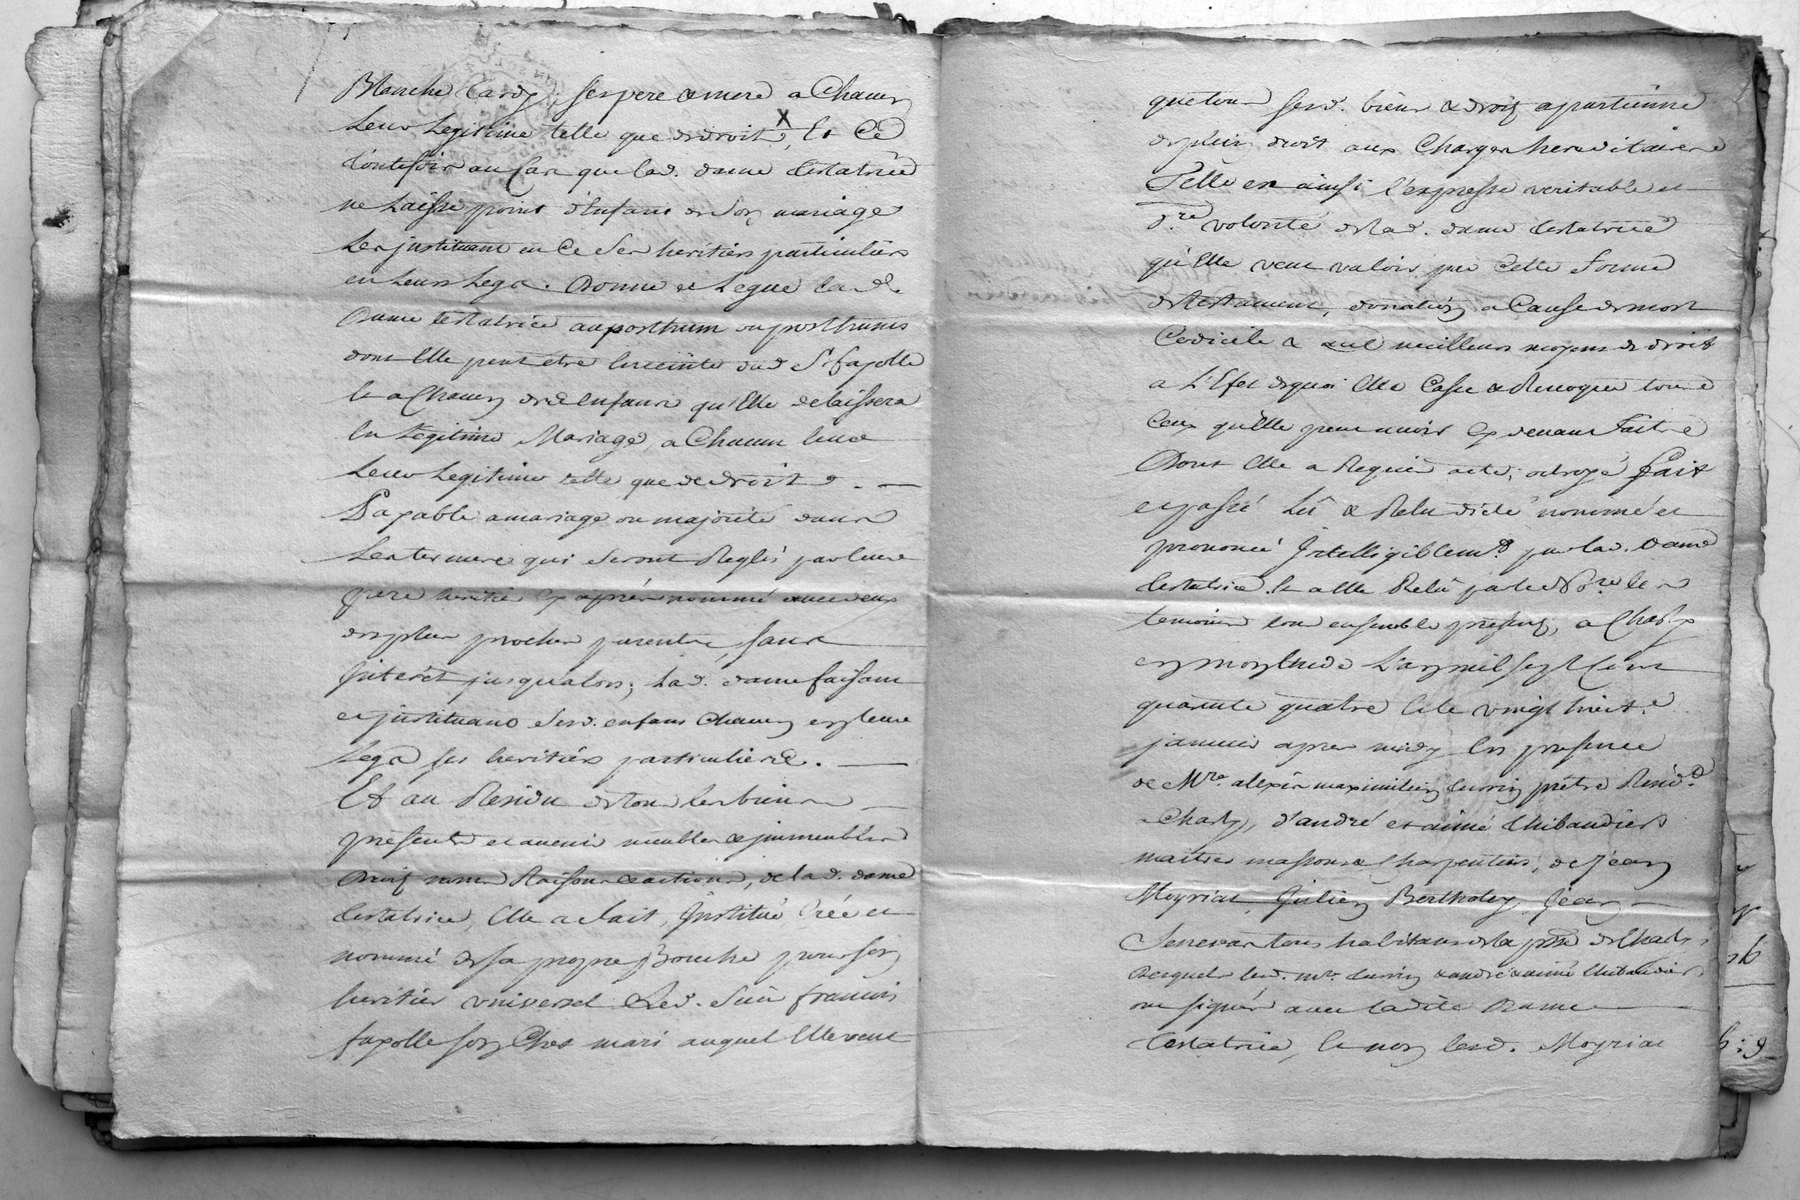 Blanche Cardy, ses pere & mere a Chacun
Leur Legitime telle que de droit, Et Ce
toutefois au Cas que lad. dame testatrice
ne Laisse point d'Enfans de Son mariage
Les jnstituant en Ce Ses heritiers particuliers
en Leurs Legs. Donne et Legue lad.
Dame testatrice au posthum ou posthumes
dont Elle peut etre Enceinte dud. Sr. fayolle
Et a Chacun des Enfans qu'Elle delaissera
En Legitime Mariage, a Chacun
Leur Legitime telle que de droit
Payable a mariage ou majorité dans
Les termes qui Seront Reglés par leur
pere heritier Cy après nommé avec deux
de plus proches parents, sans
Jnteret jusqu'alors; Lad. dame faisant
et jnstituant Sesd. enfans Chacun en leur
Legs ses heritiers particuliers.
Et au Residu de tous les biens
presents et avenir meubles & jmmeubles
Droits noms Raisons & actions, de lad. dame
testatrice, Elle a fait, Jnstitué Créé et
nommé de sa propre Bouche pour son
heritier universel Led. Sieur francois
fayolle son Cher mari auquel Elle veut
que tous sesd. biens & droits apartienne
de plein droit aux Charges hereditaires
Telle est ainsi l'expresse veritable et
d.re volonté de lad. dame testatrice
qu'Elle veut valoir par Cette forme
de testament, donation a Cause de mort
Codicile & meilleurs moyens de droit
a L'Efet dequoi Elle Casse & Revoque tous
Ceux qu'Elle peut avoir Cy devant faits
Dont Elle a Requis acte, octroyé fait
et passé Lû & Relu dicté nommé et
prononcé Jntelligiblemt par lad. Dame
testatrice Et a Elle Relû par led. No.re les
temoins tous ensemble presens, a Charly
L'an mil sept Cent
quarante quatre & le vingt huit.e
janvier apres midy En presence
de Mre. alexis maximilien prêtre Resid.t
Charly, d'andré et aimé thibaudier
maitres massons & Charpentiers, de jean
Moyriat, Julien Bertholey, jean
tous habitans de la psse de Charly
desquels lesd. mre. & andré & aimé thibaudier
ont signés avec ladite Dame
testatrice, Et non lesd. Moyriat